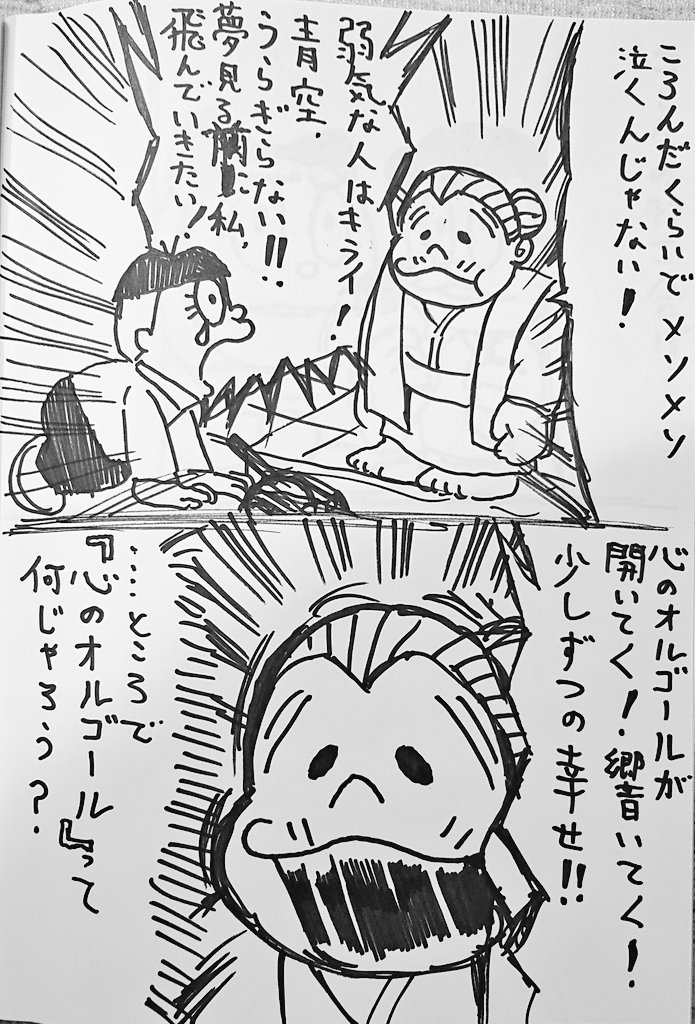 ころんだくらいでメソメソ
泣くんじゃない!
弱気な人はキライ!
青空、
うらぎらない!!
夢見る前に私、
飛んでいきたい!
心のオルゴールが
開いてく!響いてく!
少しずつの幸せ!!
……ところで
『心のオルゴール』って
何じゃろう?